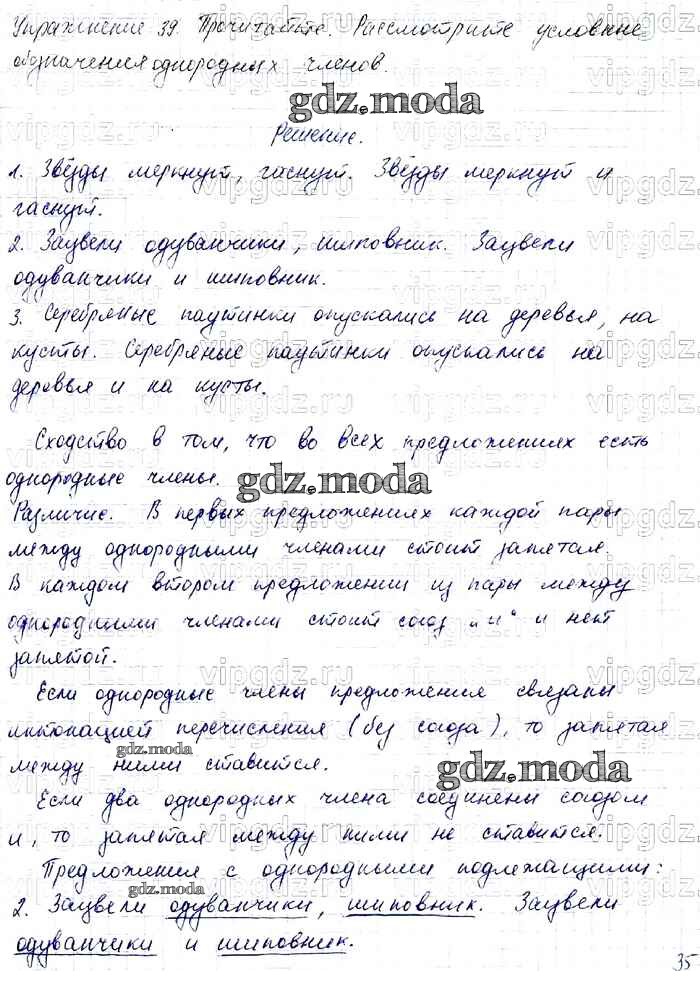 Упражнение 39. Прочитайте. Рассмотрите условные
обозначения однородных членов.
gdz.moda
Решение.
1. Звёзды меркнут, гаснут. Звёзды меркнут и
гаснут.
2. Зацвели одуванчики, шиповник. Зацвели
одуванчики и шиповник.
3. Серебряные паутинки опускались на деревья, на
кусты. Серебряные паутинки опускались на
деревья и на кусты.
Сходство в том, что во всех предложениях есть
однородные члены.
gdz.moda
Различие. В первых предложениях каждой пары
между однородными членами стоит запятая.
В каждом втором предложении из пары между
однородными членами стоит союз „и“ и нет
запятой.
Если однородные члены предложения связаны
интонацией перечисления (без союза), то запятая
между ними ставится.
gdz.moda
gdz.moda
Если два однородных члена соединены союзом
и, то запятая между ними не ставится.
Предложения с однородными подлежащими:
gdz.moda
2. Зацвели одуванчики, шиповник. Зацвели
одуванчики и шиповник.
35
vipgdz.ru